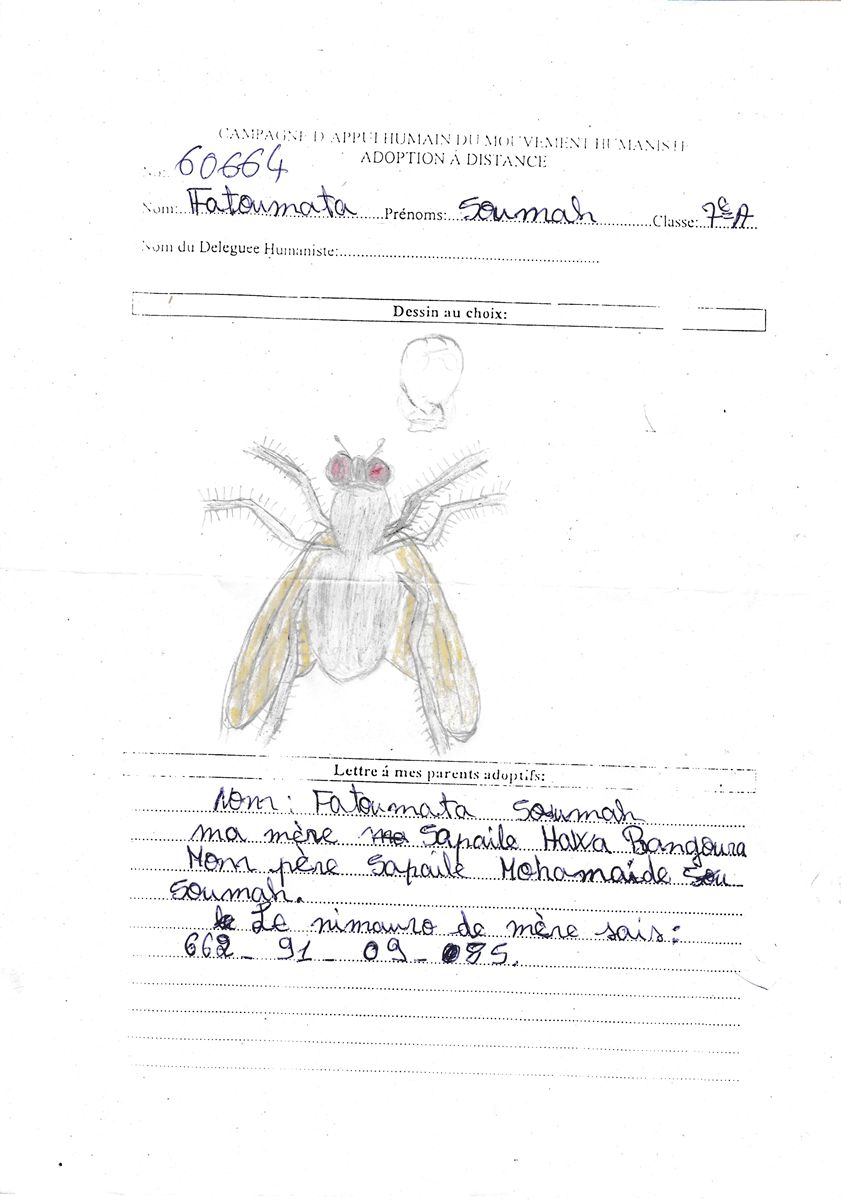 CAMPAGNE D'APPUI HUMAIN DU MOUVEMENT HUMANISTE
ADOPTION A DISTANCE
No: 60664
Nom: Fatoumata Prénoms: Soumah Classe: 7e A
Nom du Deleguee Humaniste:
Dessin au choix:
Lettre á mes parents adoptifs:
Nom : Fatoumata Soumah
ma mère Sapaile Hawa Bangoura
Mom père Sapaile Mohamaide
Soumah.
Le nimauro de mère sais:
662 - 91 - 09 - 85.